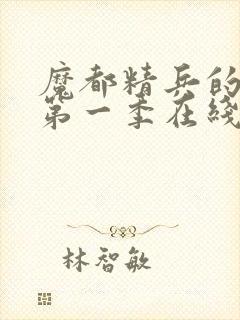 魔都精兵的
第一季在线
林智敏